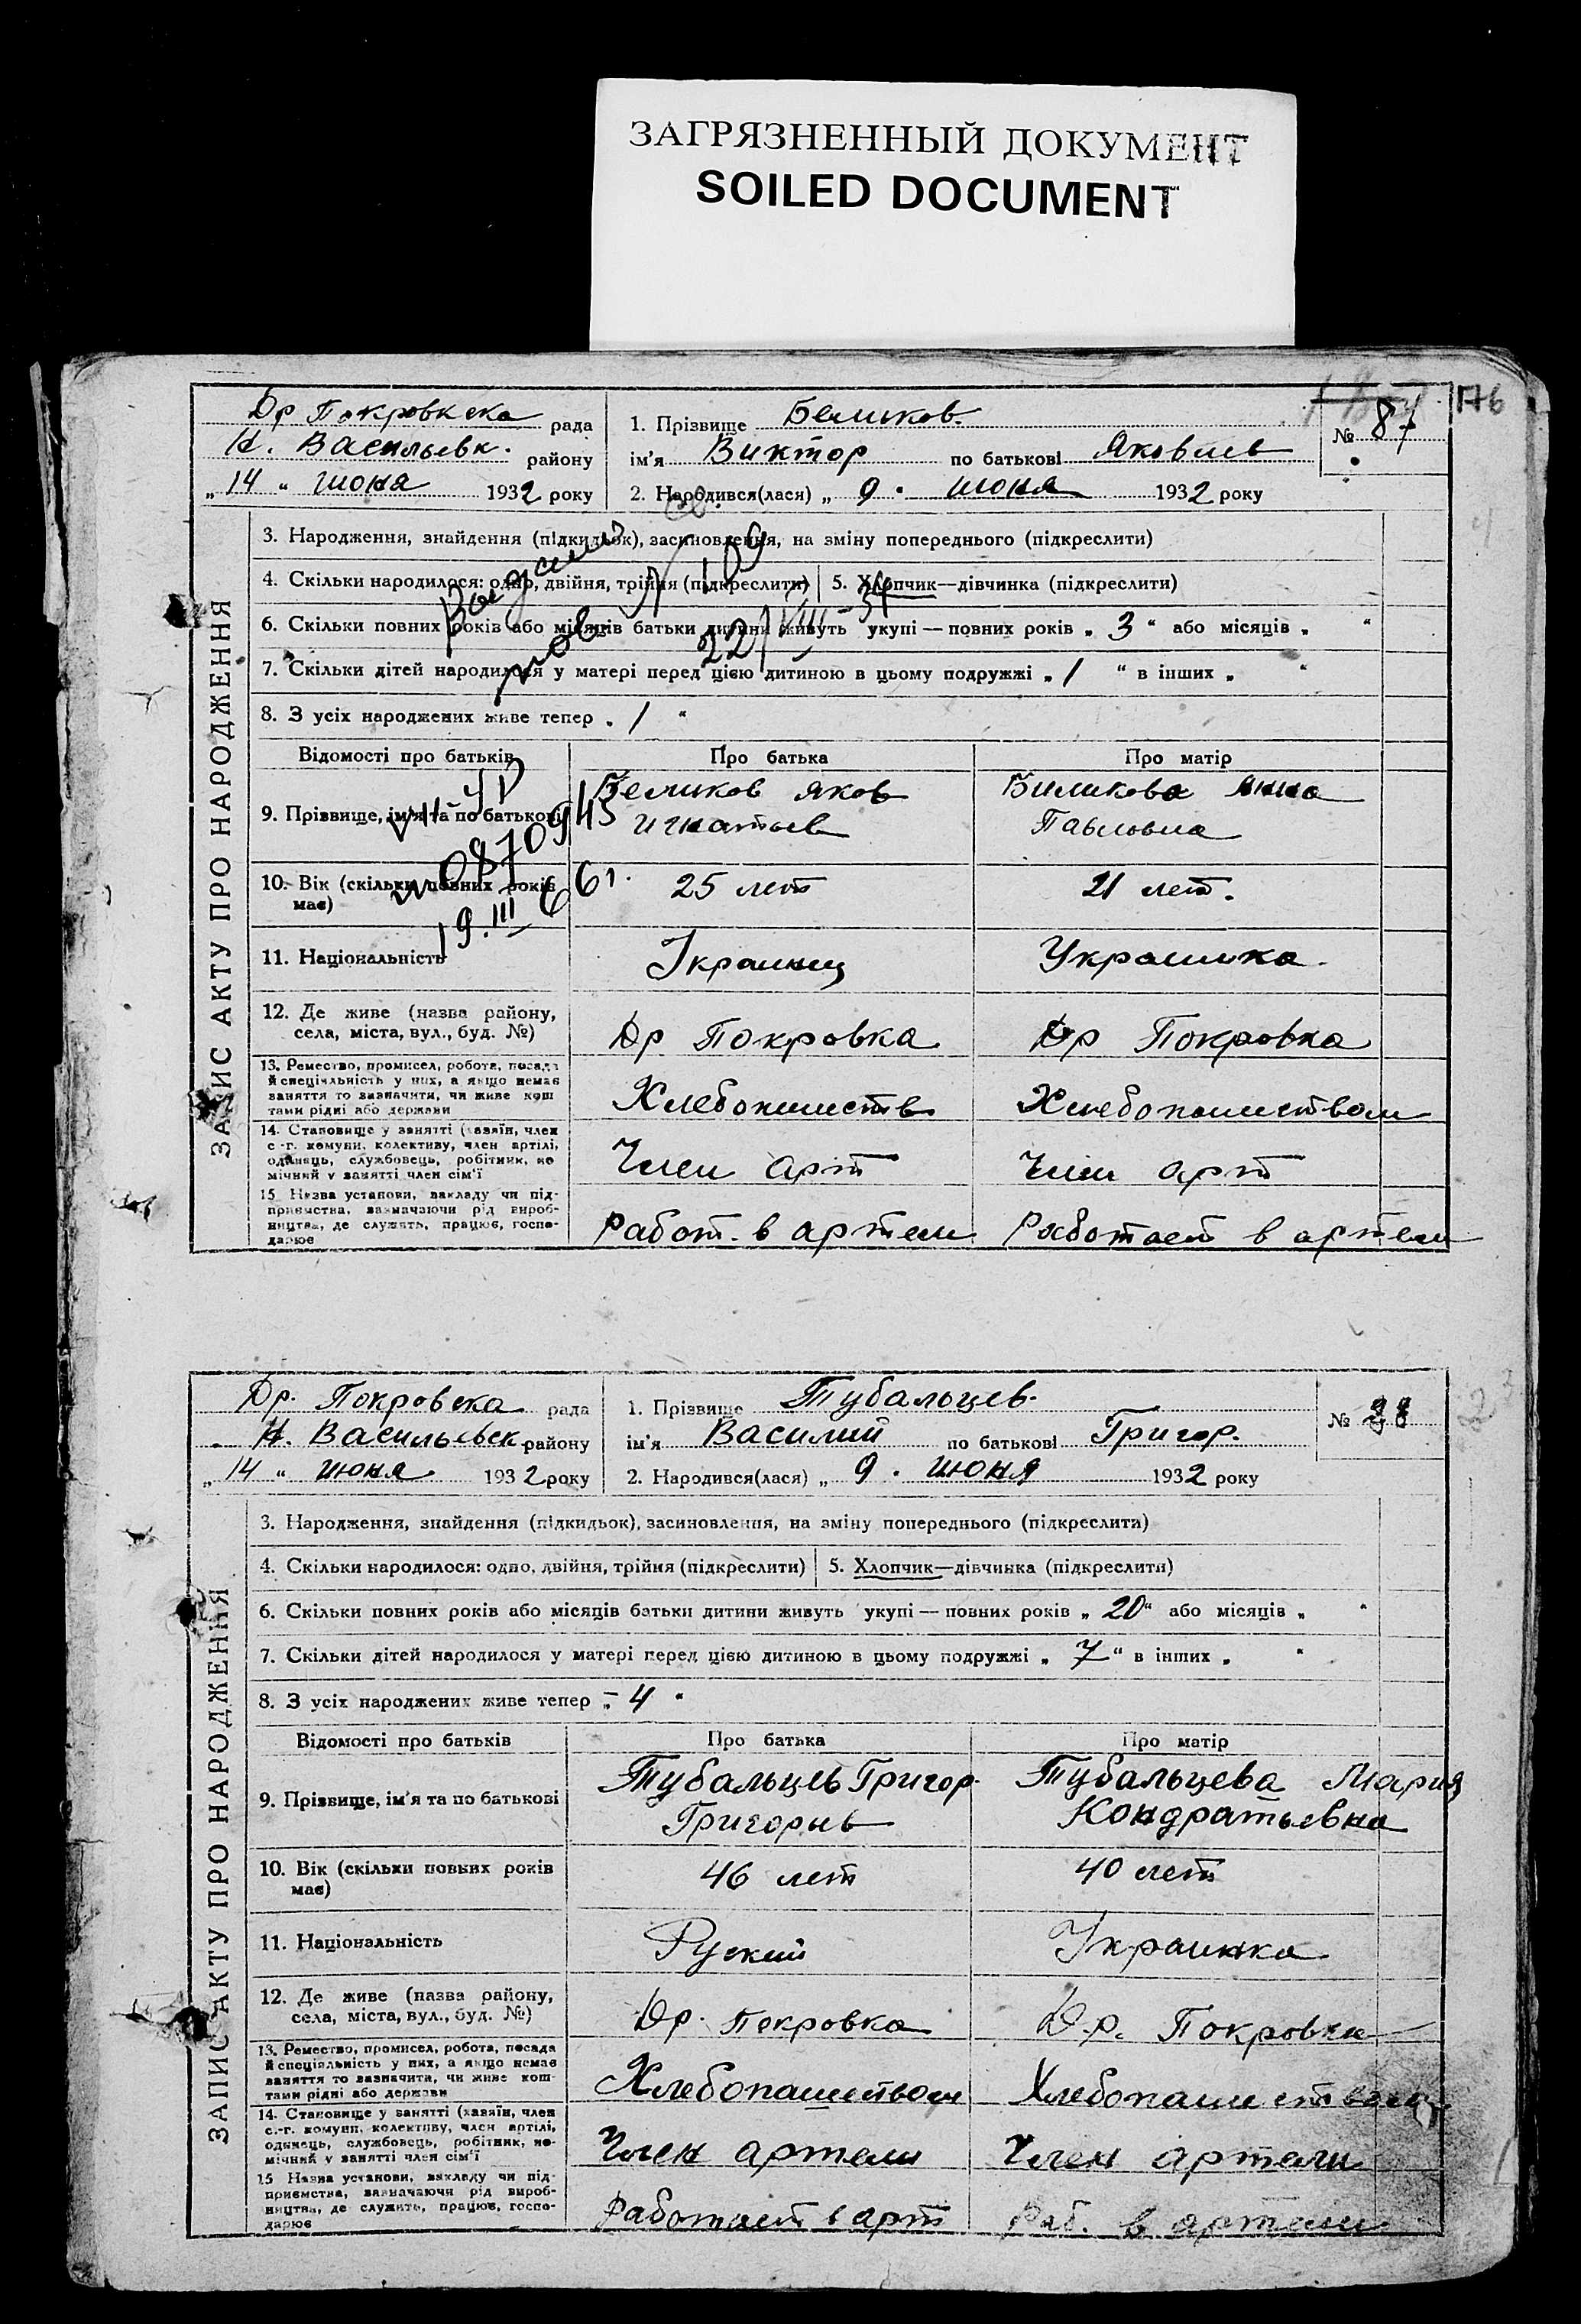 ЗАГРЯЗНЕННЫЙ ДОКУМЕНТ
SOILED DOCUMENT
176
Др Покровкска рада
Н. Васильевк. району
„14 “ июня 1932 року
1. Прізвище Беликов.
ім’я Виктор по батькові Яковлев
2. Народився(лася) „ 9 . июня 1932 року
№ 87
ЗАПИС АКТУ ПРО НАРОДЖЕННЯ
3. Народження, знайдення (підкидьок), засиновлення, на зміну попереднього (підкреслити)
4. Скільки народилося: одно, двійня, трійня (підкреслити) 5. Хлопчик—дівчинка (підкреслити)
6. Скільки повних років або місяців батьки дитини живуть укупі — повних років „ 3 “ або місяців „ “
7. Скільки дітей народилося у матері перед цією дитиною в цьому подружжі „ 1 “ в інших „ “
8. З усіх народжених живе тепер „ 1 “
Відомості про батьків Про батька Про матір
9. Прізвище, ім’я та по батькові
Беликов Яков
Игнатьев
Биликова Анна
Павловна
10. Вік (скільки повних років має)
25 лет
21 лет.
19.III 66 г.
11. Національність
Украинец
Украинка
12. Де живе (назва району,
села, міста, вул., буд. №)
Др Покровка
Др Покровка
13. Ремество, промисел, робота, посада
й спеціяльність у них, а якщо немає
заняття то зазначити, чи живе кош
тами рідні або держави
Хлебопашеств
Хлебопашеством
14. Становище у занятті (хазяїн, член
с.-г. комуни, колективу, член артілі,
одинець, службовець, робітник, по
мічний у занятті член сім’ї
Член арт
Член арт
15 Назва установи, закладу чи під-
приємства, зазначаючи рід вироб-
ництва, де служить, працює, госпо-
дарює
Работ. в артели
Работает в артели
Др. Покровска рада
Н. Васильевск району
„14 “ июня 1932 року
1. Прізвище Тубальцев.
ім’я Василий по батькові Григор.
2. Народився(лася) „ 9 . июня 1932 року
№ 88
ЗАПИС АКТУ ПРО НАРОДЖЕННЯ
3. Народження, знайдення (підкидьок), засиновлення, на зміну попереднього (підкреслити)
4. Скільки народилося: одно, двійня, трійня (підкреслити) 5. Хлопчик—дівчинка (підкреслити)
6. Скільки повних років або місяців батьки дитини живуть укупі — повних років „ 20“ або місяців „ “
7. Скільки дітей народилося у матері перед цією дитиною в цьому подружжі „ 7 “ в інших „ “
8. З усіх народжених живе тепер „ 4 “
Відомості про батьків Про батька Про матір
9. Прізвище, ім’я та по батькові
Тубальцев Григор.
Григорьев
Тубальцева Мария
Кондратьевна
10. Вік (скільки повних років
має)
46 лет
40 лет
11. Національність
Руский
Украинка
12. Де живе (назва району,
села, міста, вул., буд. №)
Др. Покровка
Др. Покровка
13. Ремество, промисел, робота, посада
й спеціяльність у них, а якщо немає
заняття то зазначити, чи живе кош-
тами рідні або держави
Хлебопашеством
Хлебопашеством
14. Становище у занятті (хазяїн, член
с.-г. комуни, колективу, член артілі,
одинець, службовець, робітник, по-
мічний у занятті член сім’ї
Член артели
Член артели
15 Назва установи, закладу чи під-
приємства, зазначаючи рід вироб-
ництва, де служить, працює, госпо-
дарює
Работает в арт
Раб. в артели